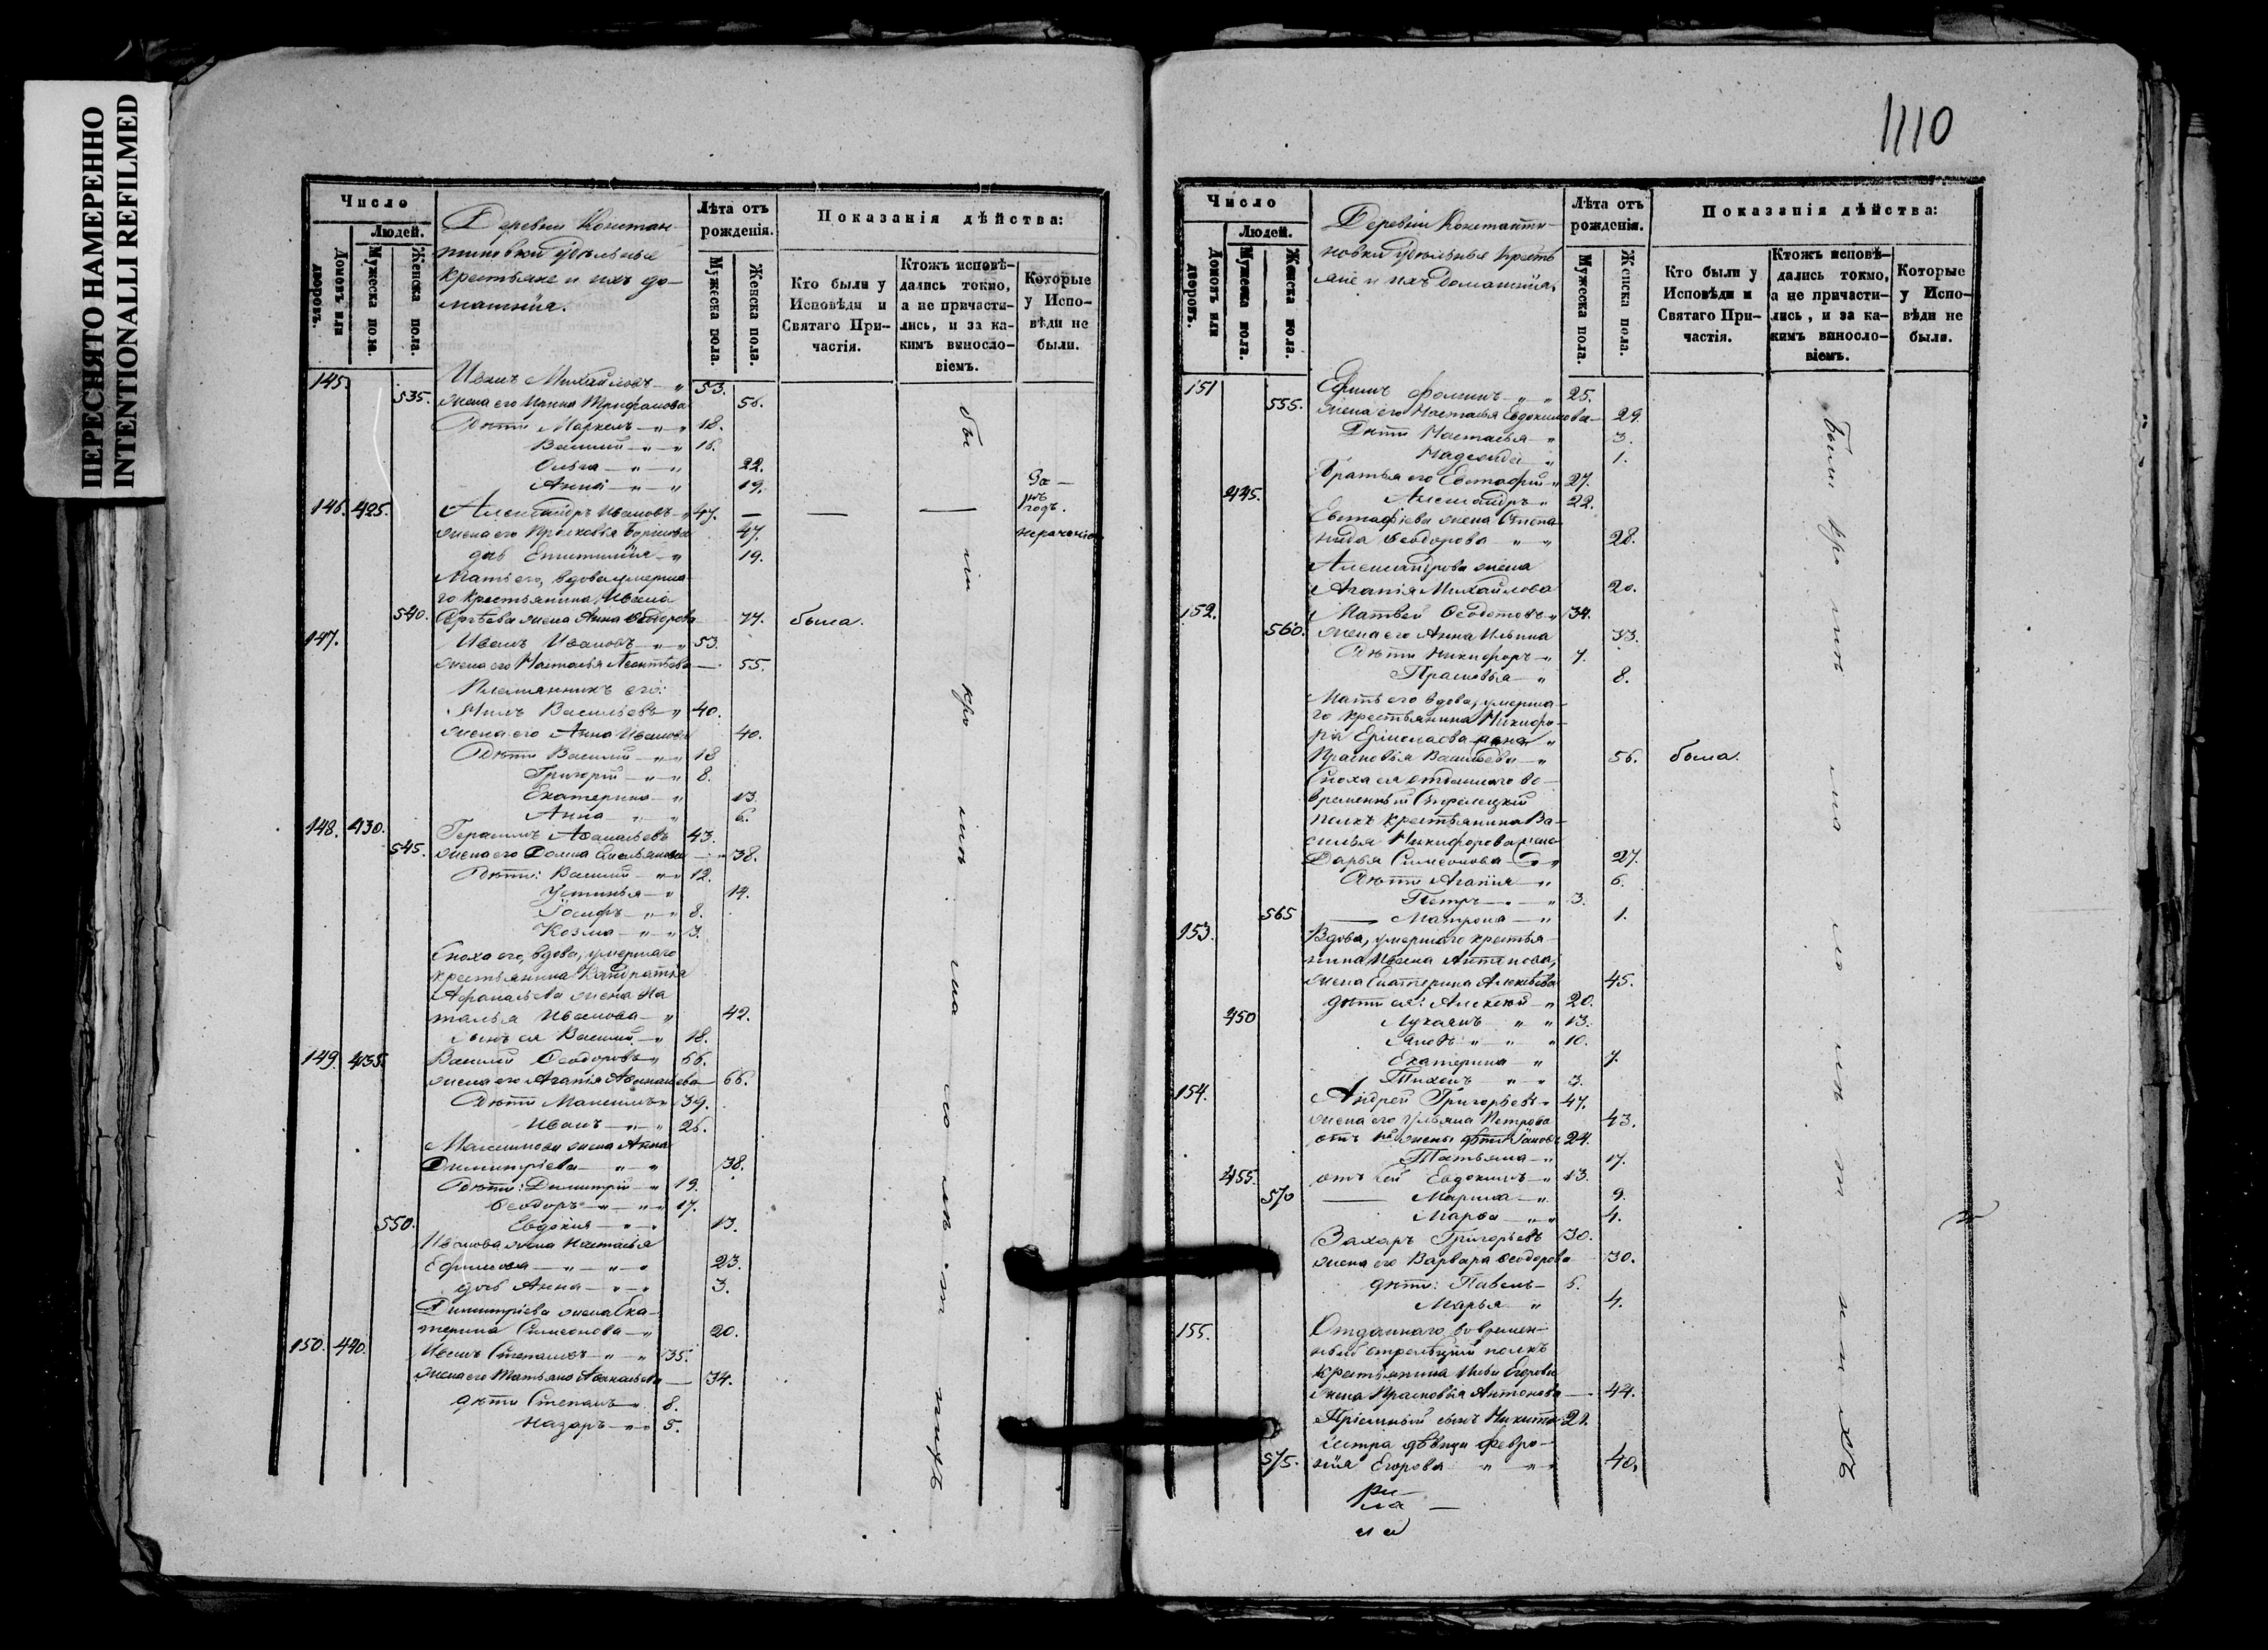 ПЕРЕСНЯТО НАМЕРЕННО
INTENTIONALLI REFILMED
1110
Число
Людей.
Домовъ или дворовъ.
Мужеска пола.
Женска пола.
Деревни Констан-
тиновки удѣльные
крестьяне и ихъ до-
машнія.
Лѣта отъ рожденія.
Мужеска пола.
Женска пола.
Показанія дѣйства:
Кто были у Исповѣди и Святаго При-частія.
Ктожъ исповѣ-дались токмо, а не причасти-лись, и за ка-кимъ винословіемъ.
Которые у Испо-вѣди не были.
145. Иванъ Михайловъ 53.
535. жена его Ирина Трифанова 56.
Дѣти Маркелъ 18.
Василій 16.
Ольга 22.
Анна 19.
146. 425. Александръ Ивановъ 47. — — 
жена его Прасковья 47. нераченію
дочь Епистимія 19.
Мать его, вдова умерша-
го крестьянина Ивана
540. Сергѣева жена Анна Ѳеодорова 77. была.
147. Иванъ Ивановъ 53.
жена его Наталья Леонтьева 55.
Племянникъ его:
Нилъ Васильевъ 40.
жена его Анна Иванова 40.
Дѣти Василій 18
Григорій 8.
Екатерина 13.
Анна 6.
148. 430. Герасимъ Аѳанасьевъ 43.
545. жена его Домна Емельянова 38.
Дѣти: Василій 12.
Устинья 14.
Іосифъ 8.
Козма 3.
Сноха его, вдова, умершаго
крестьянина
Афанасьева жена На-
талья Иванова 42.
сынъ ея Василій 18.
149. 435. Василій Ѳеодоровъ 66.
жена его Агапія Аѳанасьева 66.
Дѣти Максимъ 39.
Иванъ 26.
Максимова жена Анна
Димитріева 38.
Дѣти: Димитрій 19.
Ѳеодоръ 17.
550. Евдокия 13.
Иванова жена Наталья
Ефимова 23.
дочь Анна 3.
Димитріева жена Ека-
терина Симеонова 20.
150. 440. Иванъ Степановъ 35.
жена его Татьяна Аѳанасьева 34.
дѣти Степанъ 8.
Назаръ 5.
Число
Людей.
Домовъ или дворовъ.
Мужеска пола.
Женска пола.
Деревни Константи-
новки удѣльные кресть-
яне и ихъ домашнія.
Лѣта отъ рожденія.
Мужеска пола.
Женска пола.
Показанія дѣйства:
Кто были у Исповѣди и Святаго При-частія.
Ктожъ исповѣ-дались токмо, а не причасти-лись, и за ка-кимъ винословіемъ.
Которые у Испо-вѣди не были.
151 Ефимъ Фоминъ 25.
555. жена его Наталья Евдокимова 29.
Дѣти Наталья 3.
Надежда 1.
Братья его Евстафій 27.
445. Александръ 22.
Евстафіева жена Степа-
нида Ѳеодорова 28.
Александрова жена
Агапія Михайлова 20.
152. Матвей Ѳеодотовъ 34.
560. жена его Анна Ильина 33.
Дѣти Никифоръ 7.
Прасковья 8.
Мать его вдова, умерша-
го крестьянина Никифо-
ра Ермолаева жена
Прасковья Васильева 56. была.
Сноха ея отданнаго во
временный Стрелецкій
полкъ крестьянина Ва-
силья Никифорова жена
Дарья Симеонова 27.
Дѣти Агапія 6.
Петръ 3.
565 Матрона 1.
153. Вдова, умершаго кресть-
янина Ивана Антипова,
жена Екатерина Алексѣева 45.
дѣти ея: Алексѣй 20.
450 Лукаянъ 13.
Яковъ 10.
Екатерина 7.
Тихонъ 3.
154. Андрей Григорьевъ 47.
жена его Ульяна Петрова 43.
отъ 1й жены дѣти Іаковъ 24.
Татьяна 17.
455. отъ 2ей Евдокимъ 13.
570 Марина 9.
Марѳа 4.
Захаръ Григорьевъ 30.
жена его Варвара Ѳеодорова 30.
дѣти: Павелъ 6.
Марья 4.
155. Отданнаго во времен-
ный стрелецкій полкъ
крестьянина Ильи Егорова
жена Прасковья Антонова 44.
Пріемный сынъ Никита 21.
сестра дѣвица Февро-
575. нія Егорова 40.